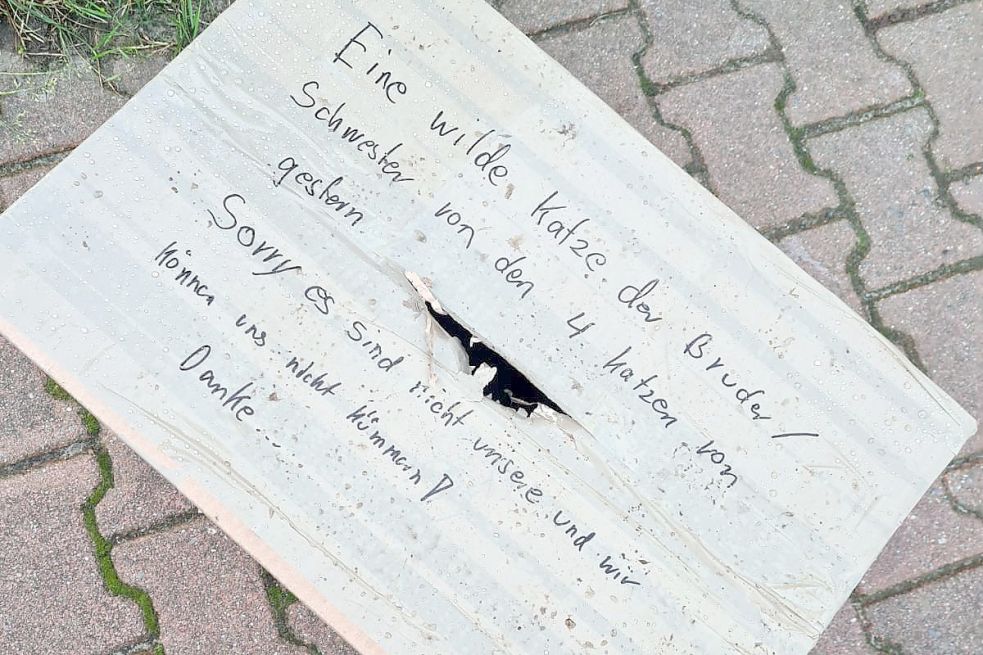 Eine wilde Katze der Bruder/
Schwester von den 4 Katzen von
gestern
Sorry es sind nicht unsere und wir
können uns nicht kümmern!
Danke...